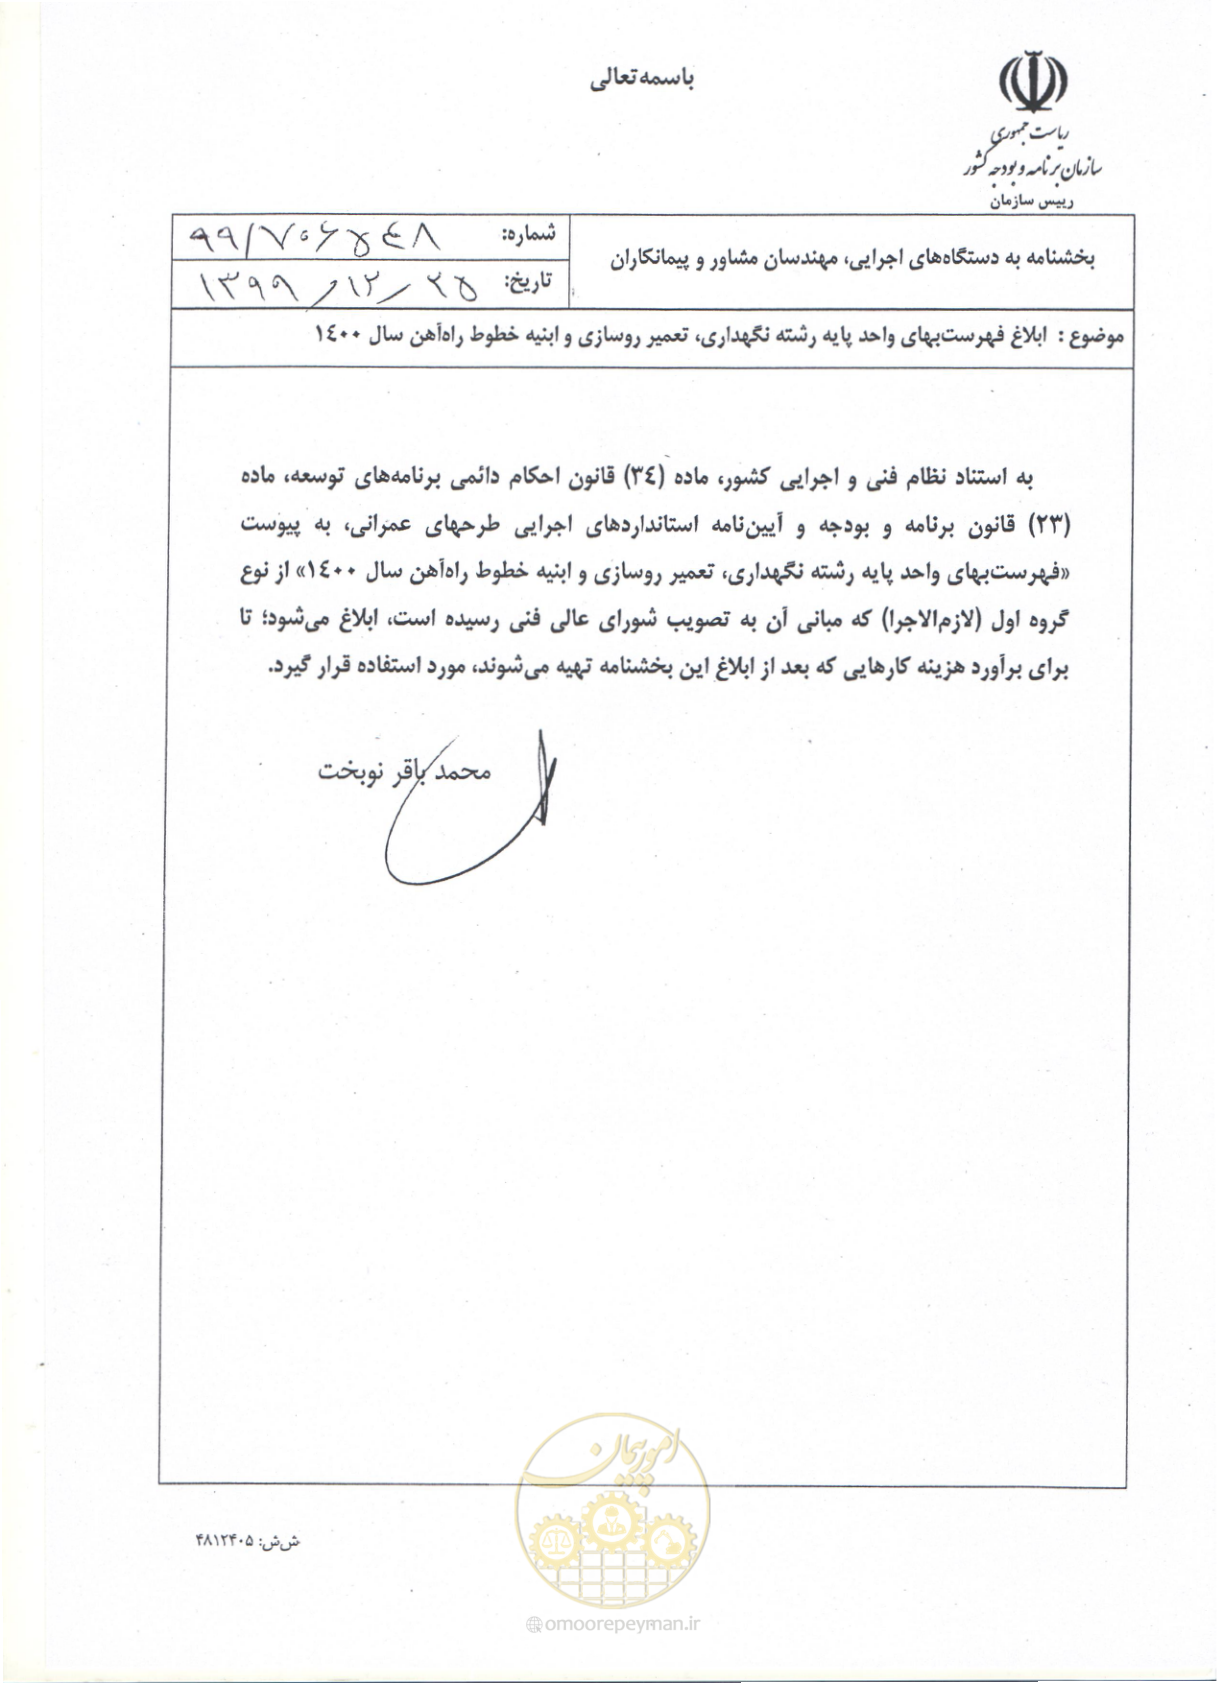 باسمه تعالی
ریاست جمهوری
سازمان برنامه و بودجه کشور
رییس سازمان
بخشنامه به دستگاه‌های اجرایی، مهندسان مشاور و پیمانکاران
شماره: ۹۹/۷۰۶۵٤۸
تاریخ: ۱۳۹۹/۱۲/۲۵
موضوع : ابلاغ فهرست‌بهای واحد پایه رشته نگهداری، تعمیر روسازی و ابنیه خطوط راه‌آهن سال ۱٤۰۰
به استناد نظام فنی و اجرایی کشور، ماده (۳٤) قانون احکام دائمی برنامه‌های توسعه، ماده
(۲۳) قانون برنامه و بودجه و آیین‌نامه استانداردهای اجرایی طرحهای عمرانی، به پیوست
«فهرست‌بهای واحد پایه رشته نگهداری، تعمیر روسازی و ابنیه خطوط راه‌آهن سال ۱٤۰۰» از نوع
گروه اول (لازم‌الاجرا) که مبانی آن به تصویب شورای عالی فنی رسیده است، ابلاغ می‌شود؛ تا
برای برآورد هزینه کارهایی که بعد از ابلاغ این بخشنامه تهیه می‌شوند، مورد استفاده قرار گیرد.
محمد باقر نوبخت
امور پیمان
ش‌ش: ۴۸۱۲۴۰۵
omoorepeyman.ir